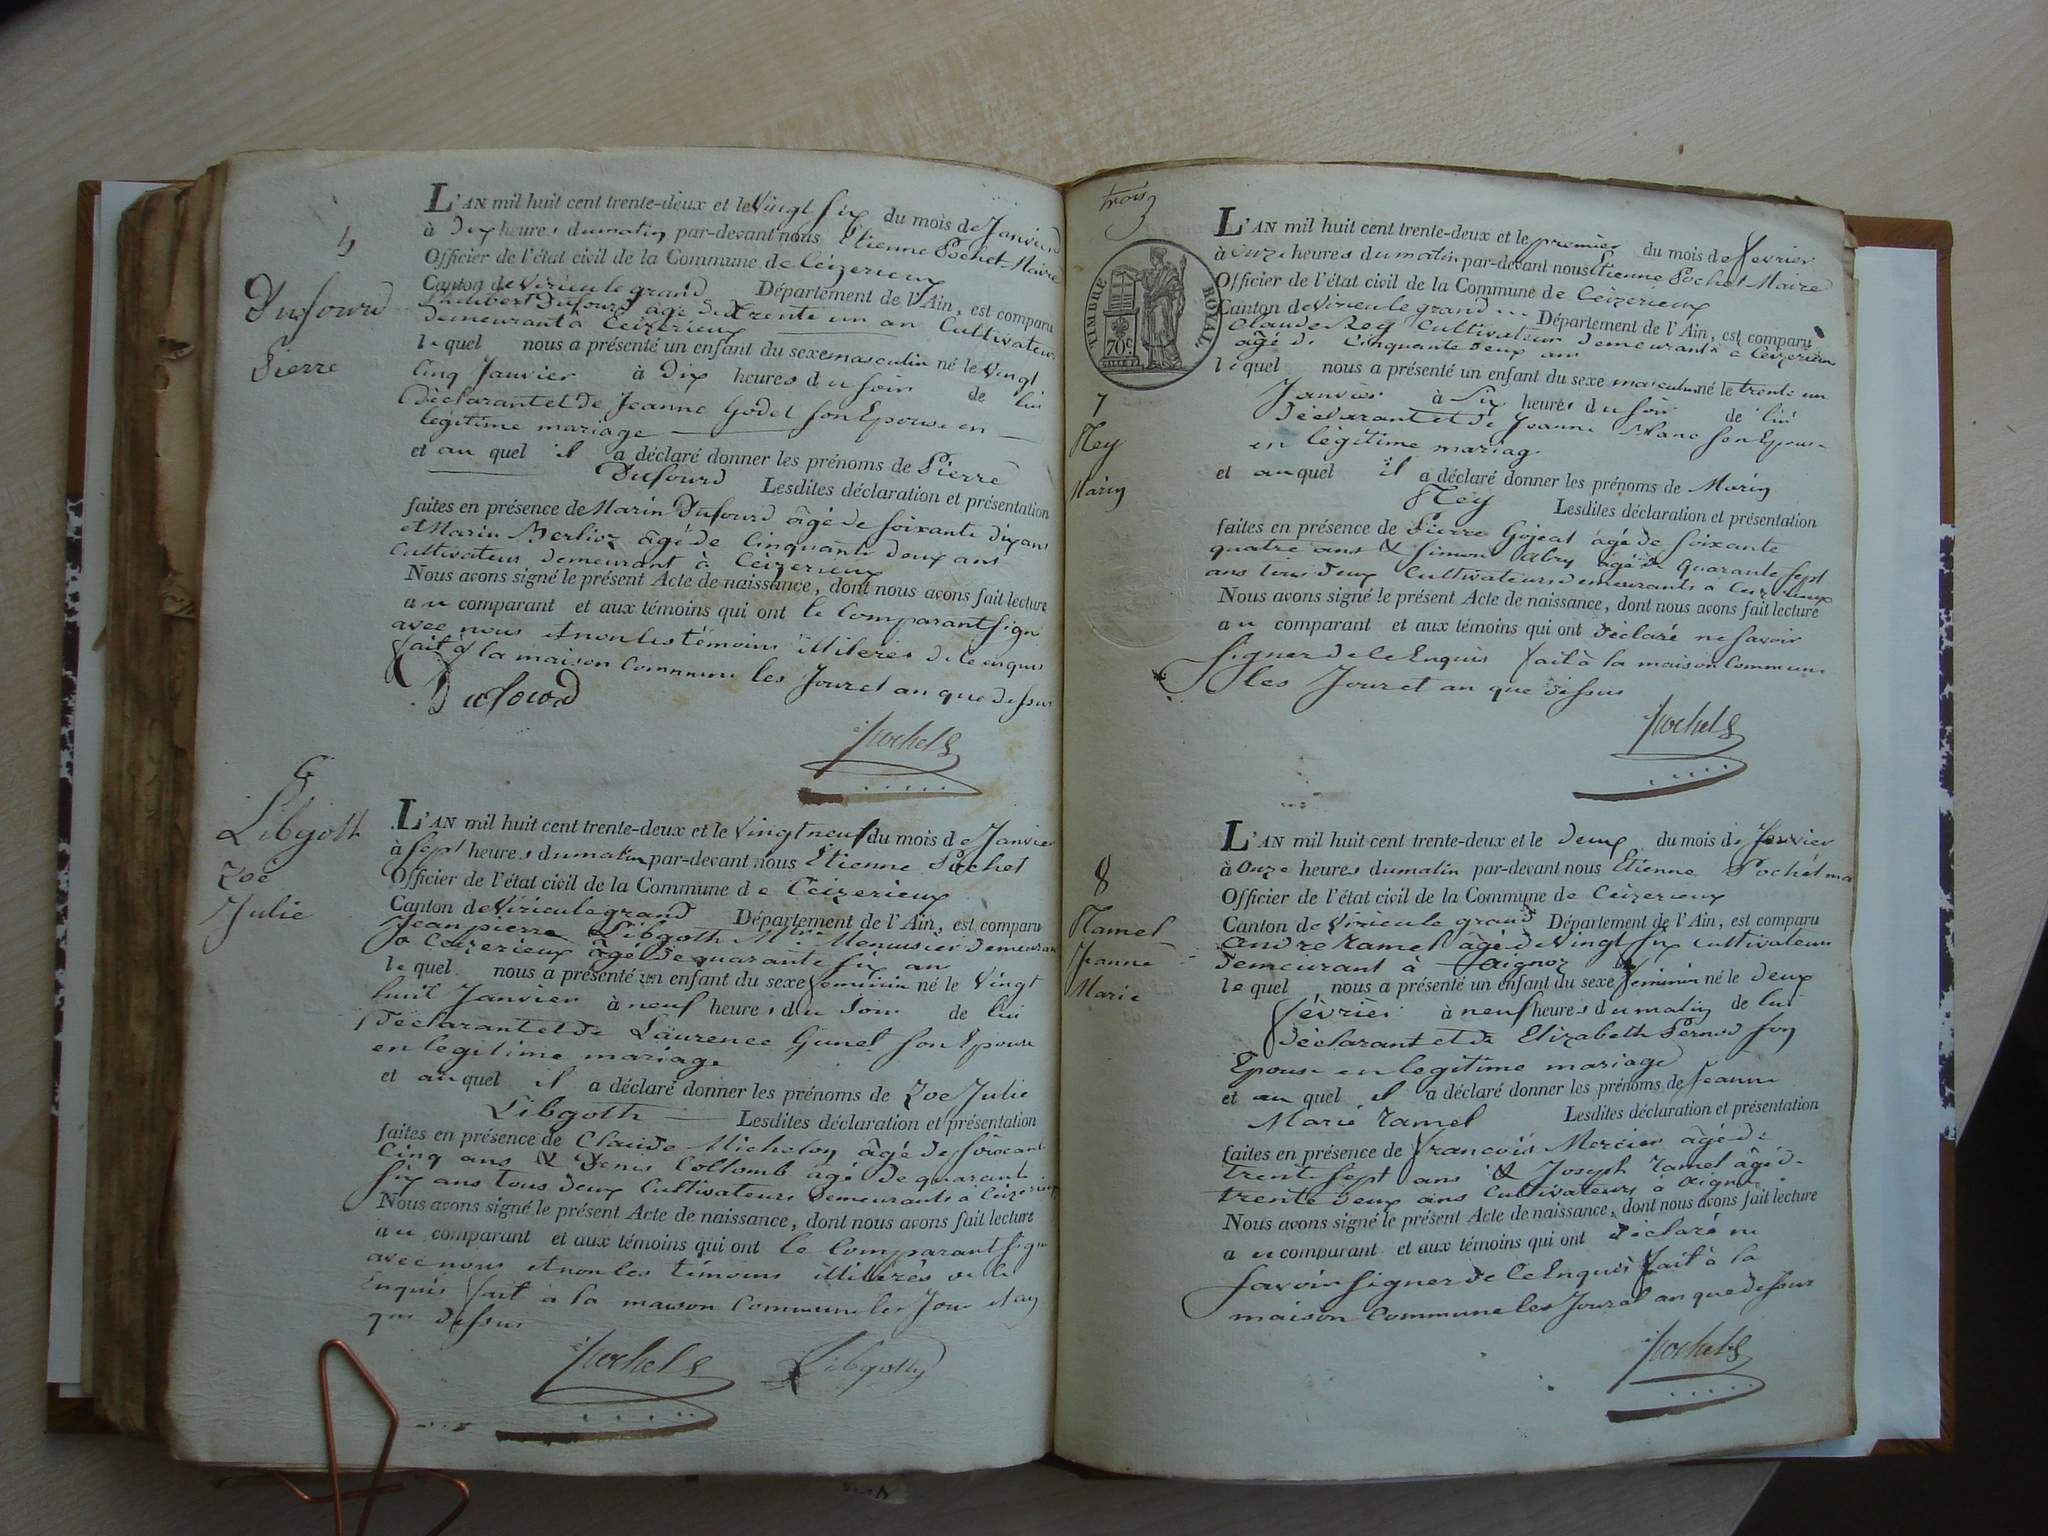 5
Dufourd
Pierre
L'AN mil huit cent trente-deux et le Vingt Six du mois de Janvier
à Dix heures du matin par-devant nous Etienne Pochet Maire
Officier de l'état civil de la Commune de Ceizerieux
Canton de Virieu le grand Département de l'Ain, est comparu
Dufourd âgé de trente un an Cultivateur
demeurant à Ceizerieux
lequel nous a présenté un enfant du sexe masculin né le Vingt
Cinq Janvier à Dix heures du Soir de lui
Déclarant et De Jeanne Godet Son Epouse en
légitime mariage
et au quel il a déclaré donner les prénoms de Pierre
Dufourd Lesdites déclaration et présentation
faites en présence de Marin Dufourd âgé de Soixante dix ans
et Marin Berlioz âgé de Cinquante deux ans
Cultivateur demeurant à Ceizerieux
Nous avons signé le présent Acte de naissance, dont nous avons fait lecture
au comparant et aux témoins qui ont le Comparant Signé
avec nous et non les témoins illiterés de ce enquis
fait à la maison Commune les Jour et an que dessus
Dufourd
Pochet
6
Libgoth
Zoé
Julie
L'AN mil huit cent trente-deux et le Vingt neuf du mois de Janvier
à Sept heures du matin par-devant nous Etienne Pochet
Officier de l'état civil de la Commune de Ceizerieux
Canton de Virieu le grand Département de l'Ain, est comparu
Jean pierre Libgoth Menuisier demeurant
à Ceizerieux âgé de quarante Six an
lequel nous a présenté un enfant du sexe feminin né le Vingt
huit Janvier à neuf heures du Soir de lui
Déclarant et De Laurence Gunet Son Epouse
en legitime mariage
et au quel il a déclaré donner les prénoms de Zoé Julie
Libgoth Lesdites déclaration et présentation
faites en présence de Claude Michelon âgé de Soixante
Cinq ans & Denis Collomb âgé De quarante
Six ans tous deux Cultivateurs demeurants à Ceizerieux
Nous avons signé le présent Acte de naissance, dont nous avons fait lecture
au comparant et aux témoins qui ont le Comparant Signé
avec nous et non les témoins illiterés de ce
Enquis fait à la maison Commune les Jour et an
que dessus
Pochet Libgoth
trois
TIMBRE ROYAL
70c
7
Rey
Marin
L'AN mil huit cent trente-deux et le premier du mois de fevrier
à Onze heures du matin par-devant nous Etienne Pochet Maire
Officier de l'état civil de la Commune de Ceizerieux
Canton de Virieu le grand Département de l'Ain, est comparu
Claude Rey Cultivateur demeurant à Ceizerieux
âgé de Cinquante deux ans
lequel nous a présenté un enfant du sexe masculin né le trente un
Janvier à Six heures du Soir de lui
Déclarant et de Jeanne Blanc Son Epouse
en légitime mariage
et au quel il a déclaré donner les prénoms de Marin
Rey Lesdites déclaration et présentation
faites en présence de Pierre Gojeat âgé de Soixante
quatre ans & Simon Abry âgé de quarante Sept
ans tous deux Cultivateurs demeurants à Ceizerieux
Nous avons signé le présent Acte de naissance, dont nous avons fait lecture
au comparant et aux témoins qui ont Déclaré ne Savoir
Signer de Ce Enquis fait à la maison Commune
les Jour et an que dessus
Pochet
8
Ramel
Jeanne
Marie
L'AN mil huit cent trente-deux et le deux du mois de fevrier
à Onze heures du matin par-devant nous Etienne Pochet ma
Officier de l'état civil de la Commune de Ceizerieux
Canton de Virieu le grand Département de l'Ain, est comparu
André Ramel âgé de Vingt Six Cultivateur
demeurant à Aignoz
lequel nous a présenté un enfant du sexe feminin né le Deux
février à neuf heures du matin de lui
Déclarant et de Elizabeth Pernod Son
Epouse en legitime mariage
et au quel il a déclaré donner les prénoms de Jeanne
Marie Ramel Lesdites déclaration et présentation
faites en présence de francois Mercier âgé de
trente Sept ans & Joseph Ramel âgé de
trente deux ans Cultivateurs à Aignoz
Nous avons signé le présent Acte de naissance, dont nous avons fait lecture
au comparant et aux témoins qui ont Déclaré ne
Savoir Signer de Ce Enquis fait à la
maison Commune les Jour et an que dessus
Pochet